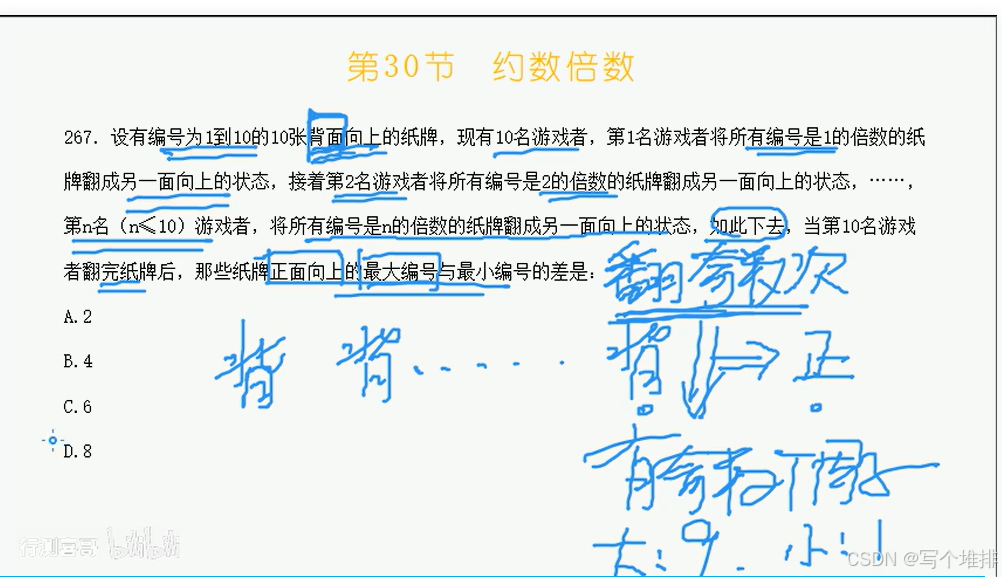 第30节 约数倍数
267. 设有编号为1到10的10张背面向上的纸牌，现有10名游戏者，第1名游戏者将所有编号是1的倍数的纸
牌翻成另一面向上的状态，接着第2名游戏者将所有编号是2的倍数的纸牌翻成另一面向上的状态，……，
第n名（n≤10）游戏者，将所有编号是n的倍数的纸牌翻成另一面向上的状态，如此下去，当第10名游戏
者翻完纸牌后，那些纸牌正面向上的最大编号与最小编号的差是：
翻奇数次
A.2
背 背 ...... 背 正
B.4
C.6
D.8
有奇数个因子
大:9. 小:1
行测喜哥 bilibili
CSDN @写个堆排